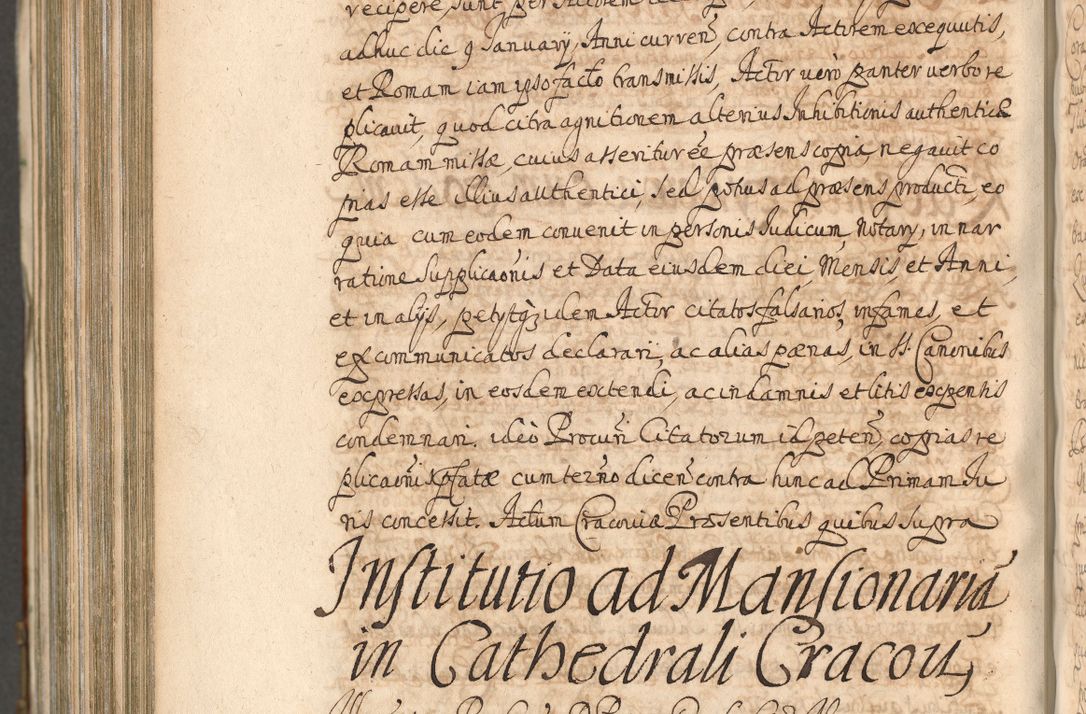 recipere, sunt per
adhuc die 9 January, Anni curren, contra Actorem exequutis,
et Romam iam ipso facto transmissis, Actor vero pariter verbo re
plicavit, quod citra agnitionem alterius Inhibitionis authenticæ
Romam missæ, cuius asseritur ee præsens copia, negavit co
pias esse illius authentici, sed potius ad præsens producti, eo
quia cum eodem convenit in personis Iudicum, Notary, in nar
ratione Supplicaonis et Data eiusdem diei, Mensis, et Anni,
et in alijs, petytq; idem Actor citatos falsarios, infames, et
excommunicatos declarari, ac alias pœnas, in SS. Canonibus
expressas, in eosdem extendi, ac in damnis et litis expensis
condemnari. ideò Procuri Citatorum id peten, copias re
plicaoni præfatæ cum termno dicen contra hinc ad Primam Iu
ris concessit. Actum Cracoviæ Præsentibus quibus supra
Institutio ad Mansionaria
in Cathedrali Cracovi,